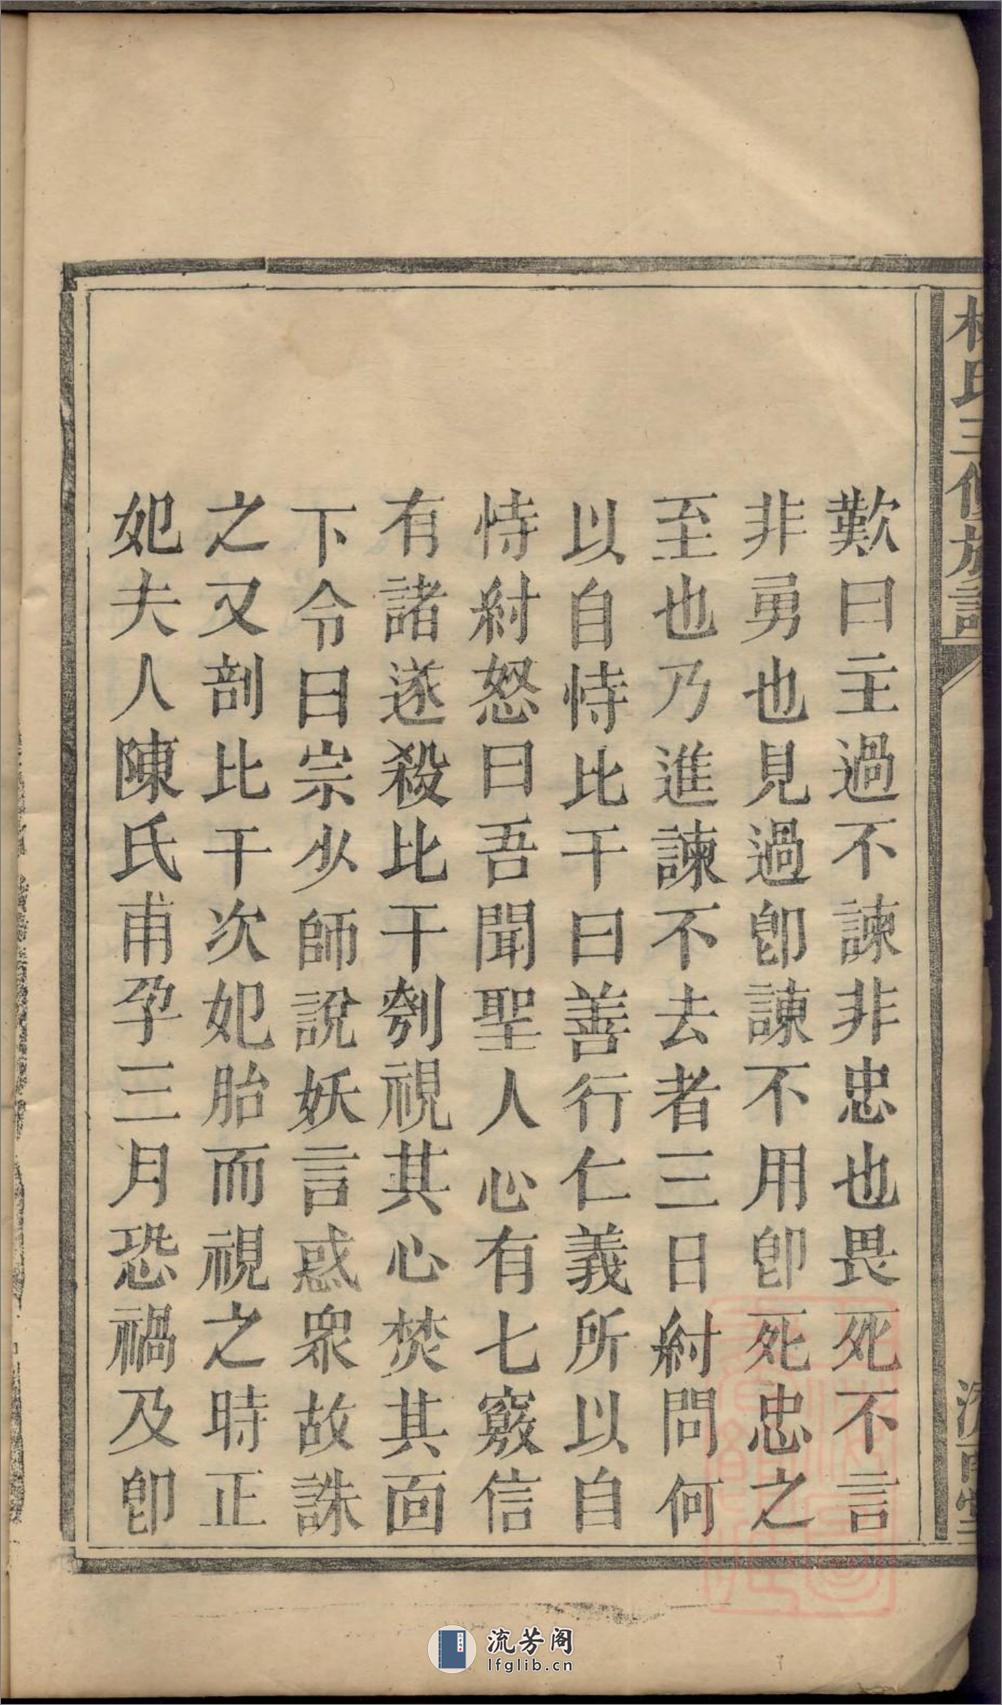 林氏三修族譜
濟南堂
歎曰主過不諫非忠也畏死不言
非勇也見過卽諫不用卽死忠之
至也乃進諫不去者三日紂問何
以自恃比干曰善行仁義所以自
恃紂怒曰吾聞聖人心有七竅信
有諸遂殺比干刳視其心焚其面
下令曰宗少師說妖言惑眾故誅
之又剖比干次妃胎而視之時正
妃夫人陳氏甫孕三月恐禍及卽
流芳阁
lfglib.cn